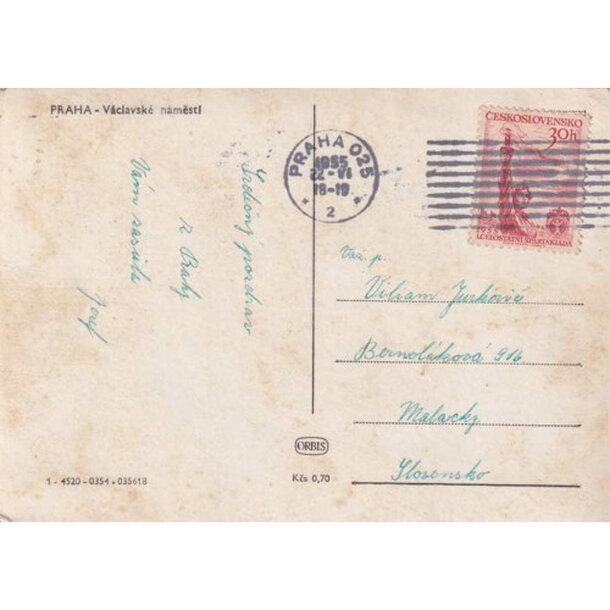 PRAHA - Václavské náměstí
Srdečný pozdrav
z Prahy
Vám zasiela
Jozef
PRAHA 025
1955
22 -VI
18-19
* 2 *
ČESKOSLOVENSKO
30h
1955
I.CELOSTÁTNÍ SPARTAKIÁDA
Váž. p.
Viliam Jurkovič
Bernoláková 906
Malacky
Slovensko
ORBIS
Kčs 0,70
1 - 4520 - 0354 . 035618